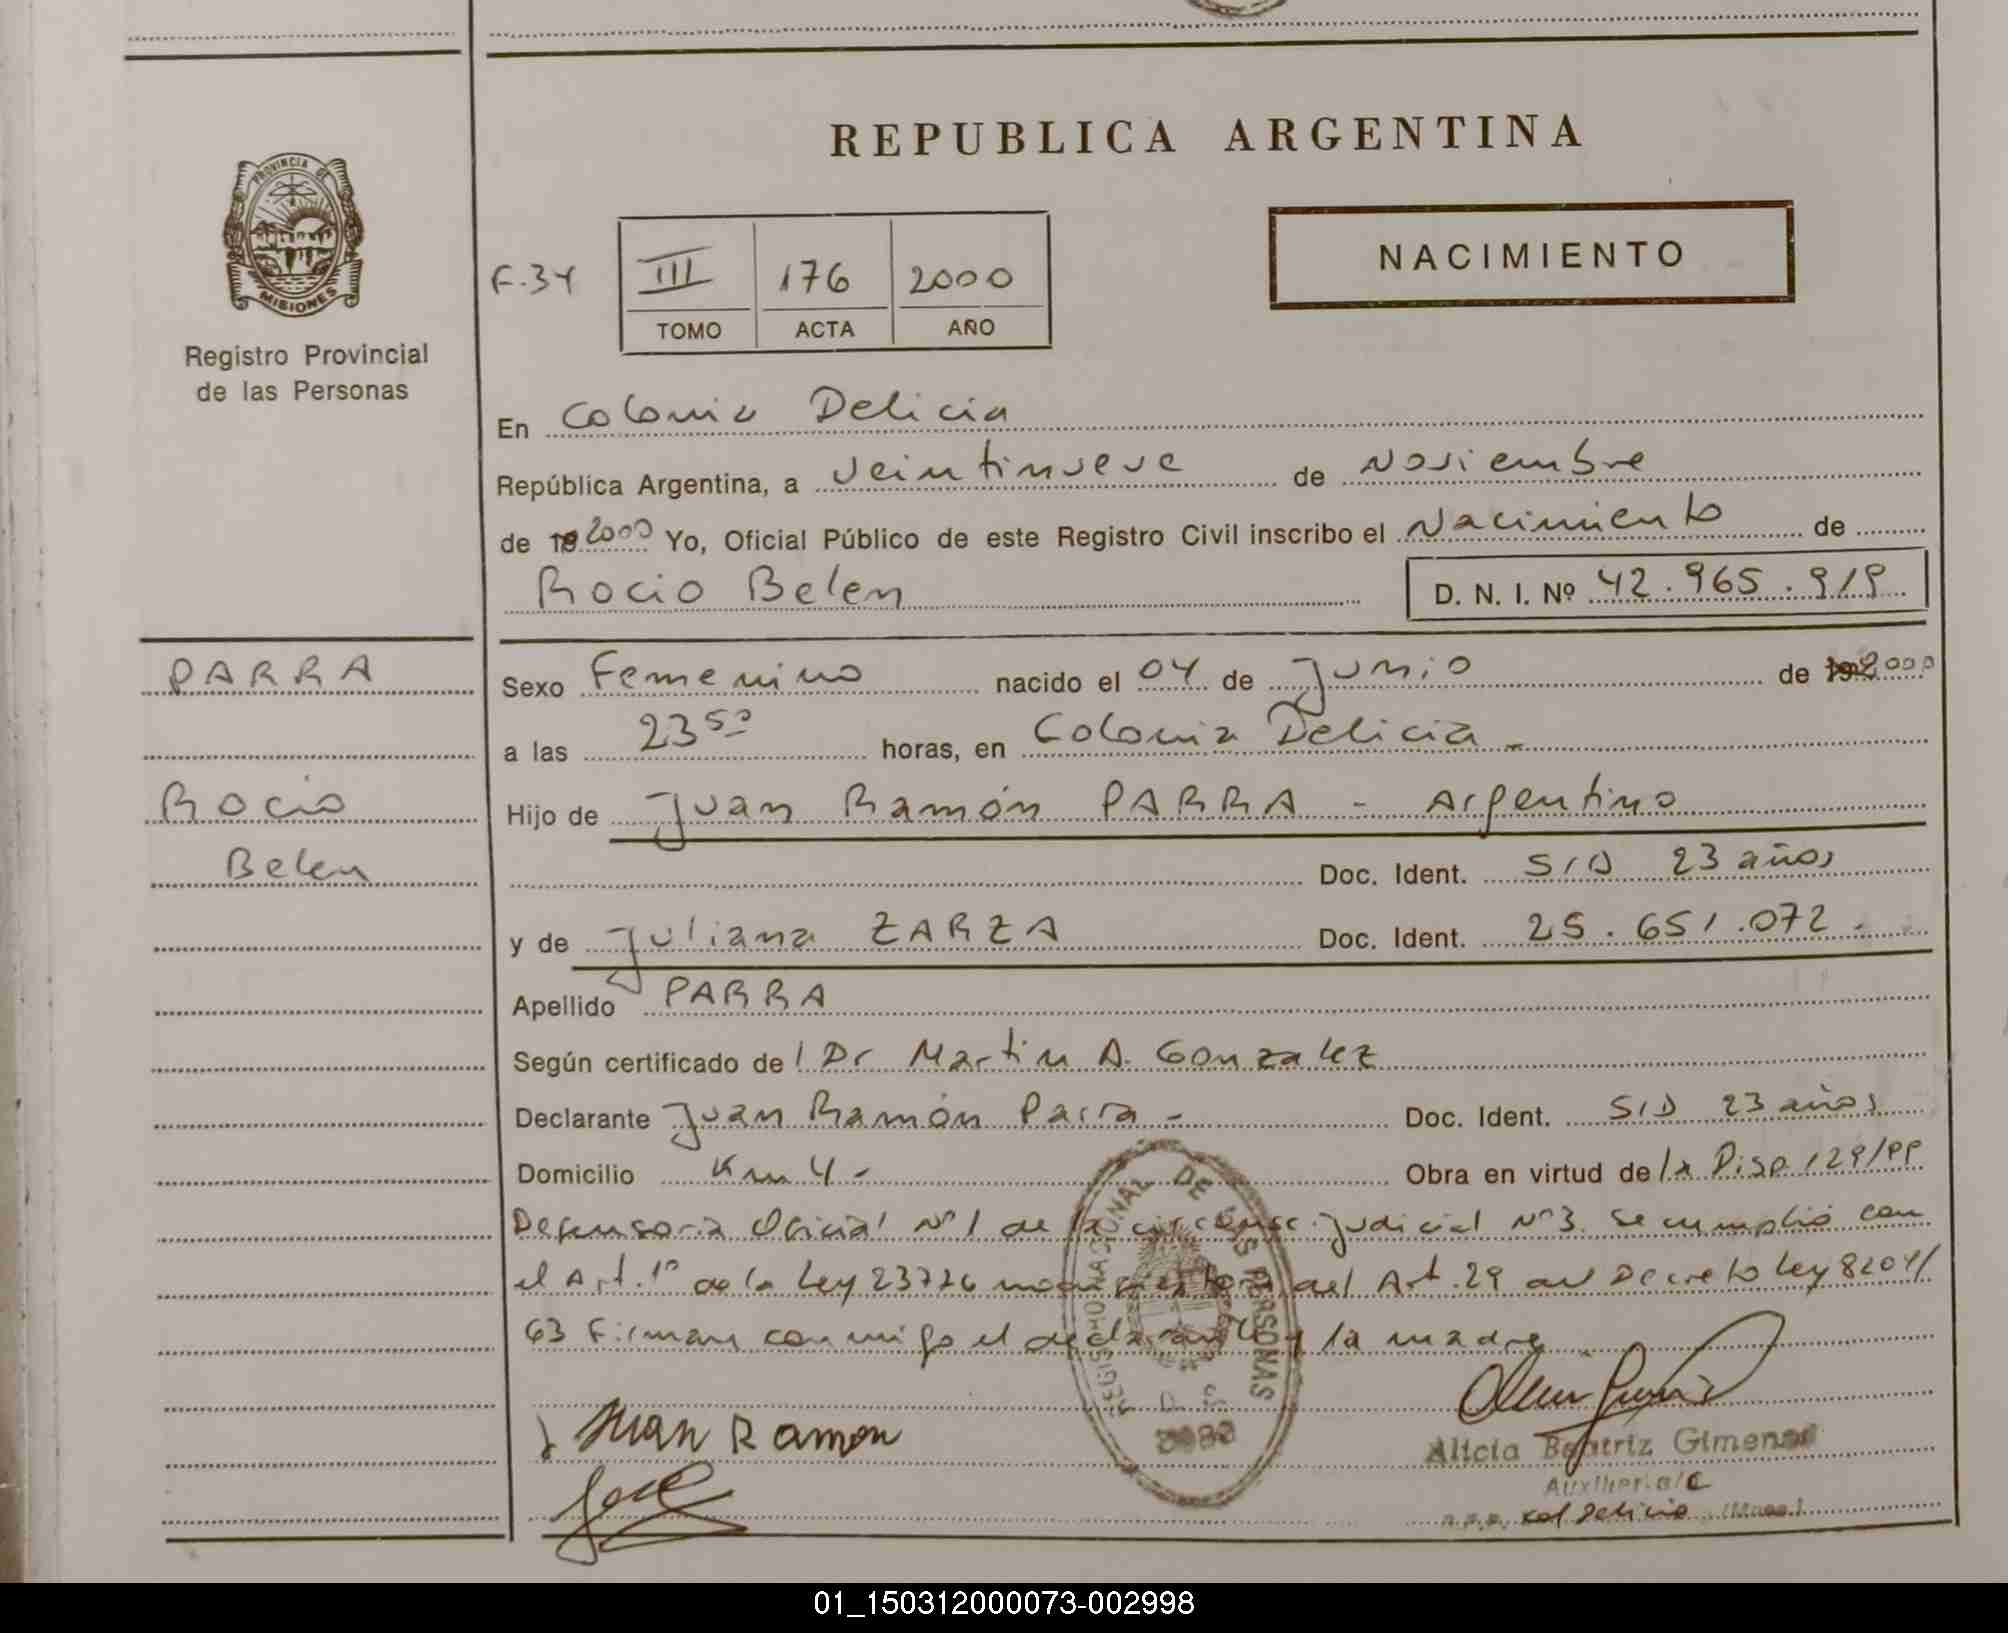 REPUBLICA ARGENTINA
PROVINCIA DE
MISIONES
Registro Provincial
de las Personas
NACIMIENTO
F.34
III 176 2000
TOMO ACTA AÑO
En Colonia Delicia
República Argentina, a veintinueve de Noviembre
de 19 2000 Yo, Oficial Público de este Registro Civil inscribo el Nacimiento de
Rocio Belen D. N. I. Nº 42.965.919
PARRA
Rocio
Belen
Sexo Femenino nacido el 04 de Junio de 2000
a las 23 50 horas, en Colonia Delicia -
Hijo de Juan Ramón PARRA - Argentino
Doc. Ident. S/D 23 años
y de Juliana ZARZA Doc. Ident. 25.651.072 -
Apellido PARRA
Según certificado de l Dr Martin A. Gonzalez
Declarante Juan Ramón Parra - Doc. Ident. S/D 23 años
Domicilio Km 4 - Obra en virtud de la Disp 129/PP
Defensoria Oficial Nº 1 de la circunsc. judicial Nº 3. Se cumplió con
el Art. 1º de la Ley 23776 del Art. 29 Decreto Ley 8204/
63 Firman conmigo el declarante y la madre
REGISTRO NACIONAL DE LAS PERSONAS
Juan Ramon
Alicia Beatriz Gimenez
Auxiliar a/c
Col Delicia (Mnes.)
01_150312000073-002998